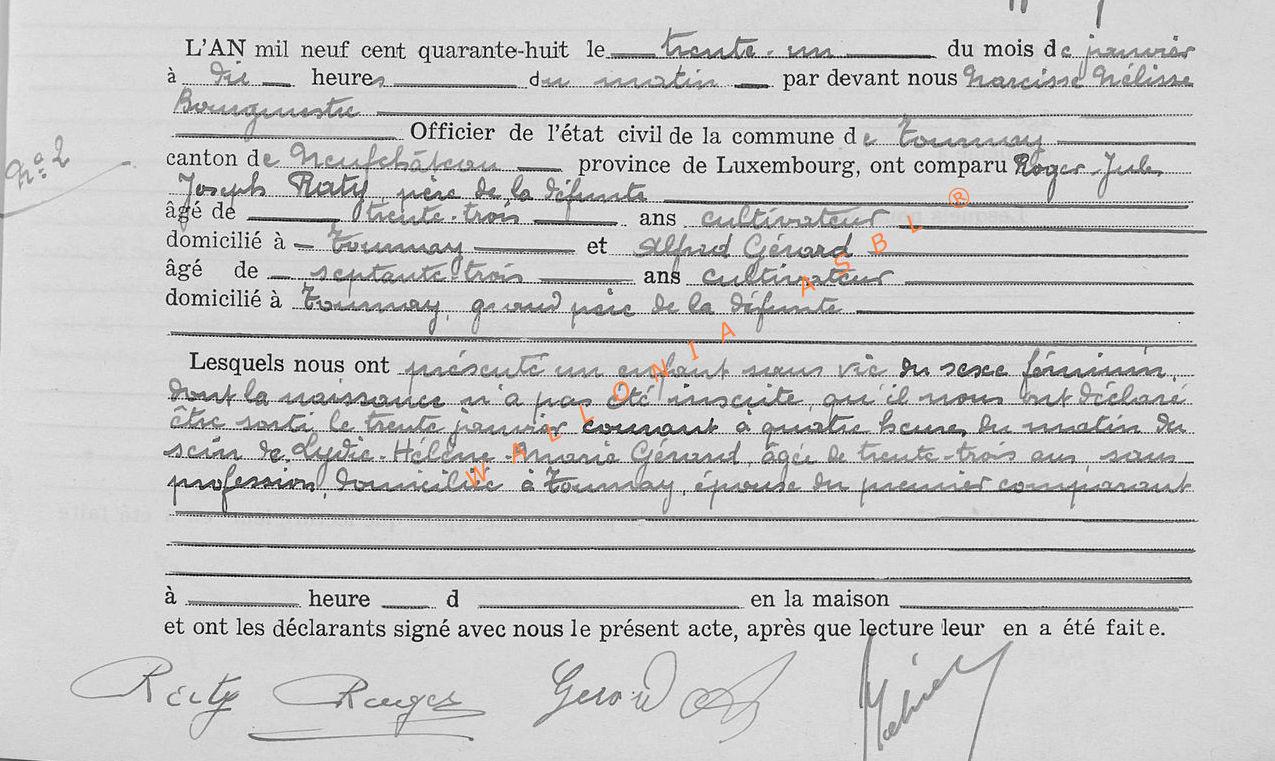 L'AN mil neuf cent quarante-huit le trente-un du mois de janvier
à dix heures du matin par devant nous Narcisse Mélisse
Bourgmestre
Officier de l'état civil de la commune de Tournay
N° 2
canton de Neufchâteau province de Luxembourg, ont comparu Roger-Jules
Joseph Raty, père de la défunte
âgé de trente-trois ans cultivateur
domicilié à Tournay et Alfred Gérard
âgé de septante-trois ans cultivateur
domicilié à Tournay, grand père de la défunte
Lesquels nous ont présenté un enfant sans vie du sexe féminin,
dont la naissance n'a pas été inscrite, qu'il nous ont déclaré
être sorti le trente janvier courant à quatre heures du matin du
sein de Lydie-Hélène-Marie Gérard, âgée de trente-trois ans, sans
profession, domiciliée à Tournay, épouse du premier comparant
à heure d en la maison
et ont les déclarants signé avec nous le présent acte, après que lecture leur en a été faite.
Raty Roger Gérard A
WALLONIA ASBL ®